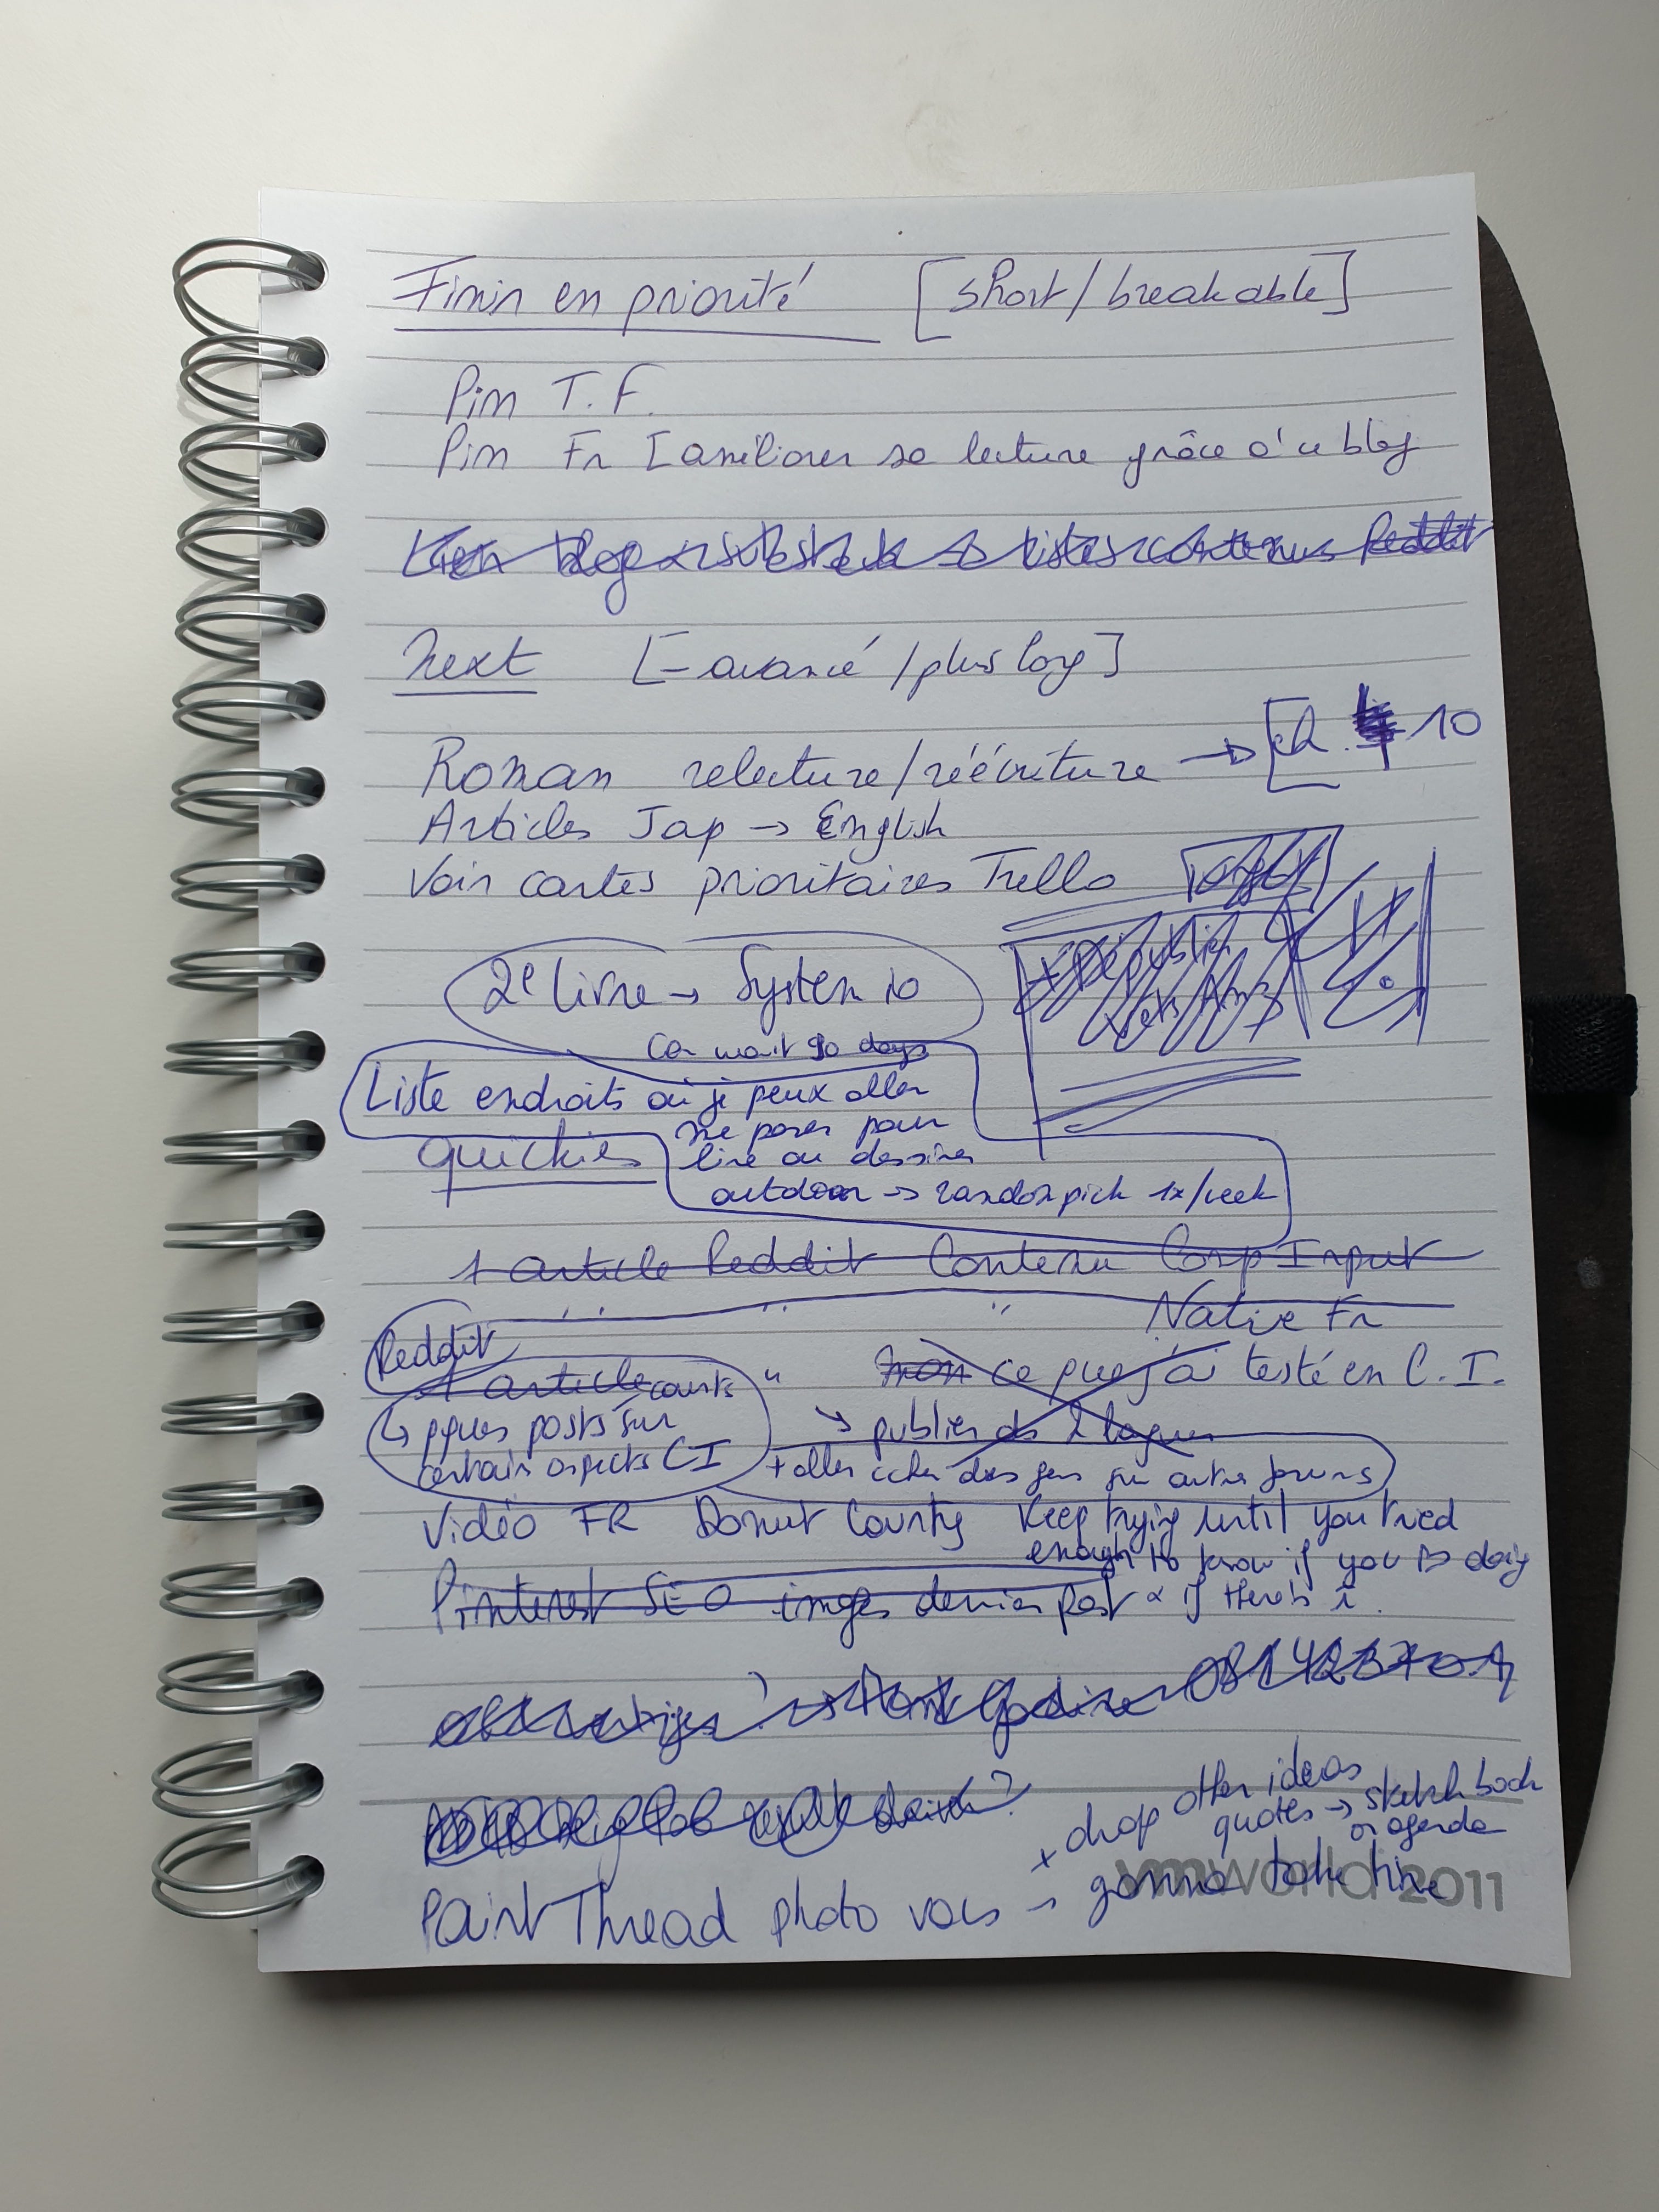 Finir en priorité [short/breakable]
Pin T.F.
Pin Fr [améliorer sa lecture grâce à ce blog
Lien blog substack listes contenus Reddit
Next [- avancé / plus long]
Roman relecture/réécriture → [ch. 10
Articles Jap → English
Voir cartes prioritaires Trello
2e livre → System io
can wait 90 days
Liste endroits où je peux aller
me poser pour
lire ou dessiner
outdoor → random pick 1x/week
quickies
1 article Reddit Contenu Comp Input
" " " Native Fr
Reddit
1 article courts " mon ce que j'ai testé en C.I.
↳ qques posts sur
certains aspects CI
↘ publier ds 2 langues
+ aller cher des gens sur autres forums
Vidéo FR Donut County Keep trying until you tried
enough to know if you doing
Pinterest SEO images dernier post & if there's
0814237
+ drop other ideas
quotes → sketchbook
or agenda
Paint Thread photo vacs → gonna take time
vmworld 2011